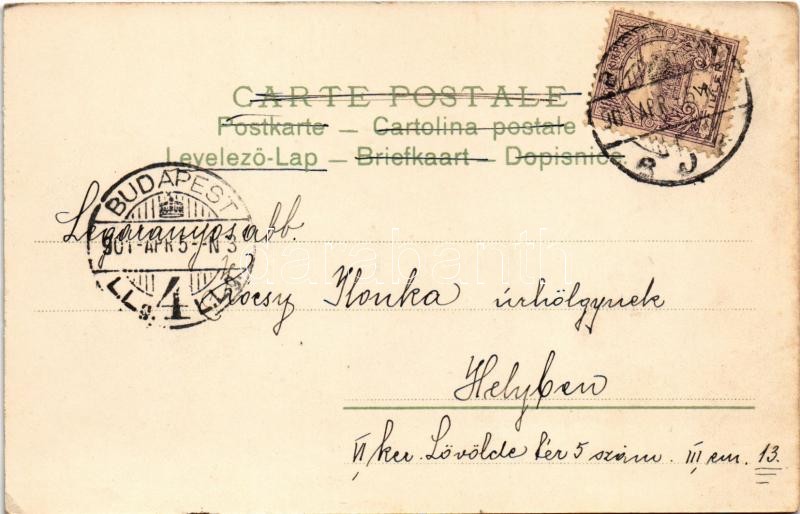 CARTE POSTALE
Postkarte – Cartolina postale
Levelező-Lap – Briefkaart – Dopisnica
BUDAPEST
901-APR 5--N 3
4
Legaranyosabb.
Ilonka úrhölgynek
Helyben
VI ker. Lövölde tér 5 szám. III, em. 13.
darabanth